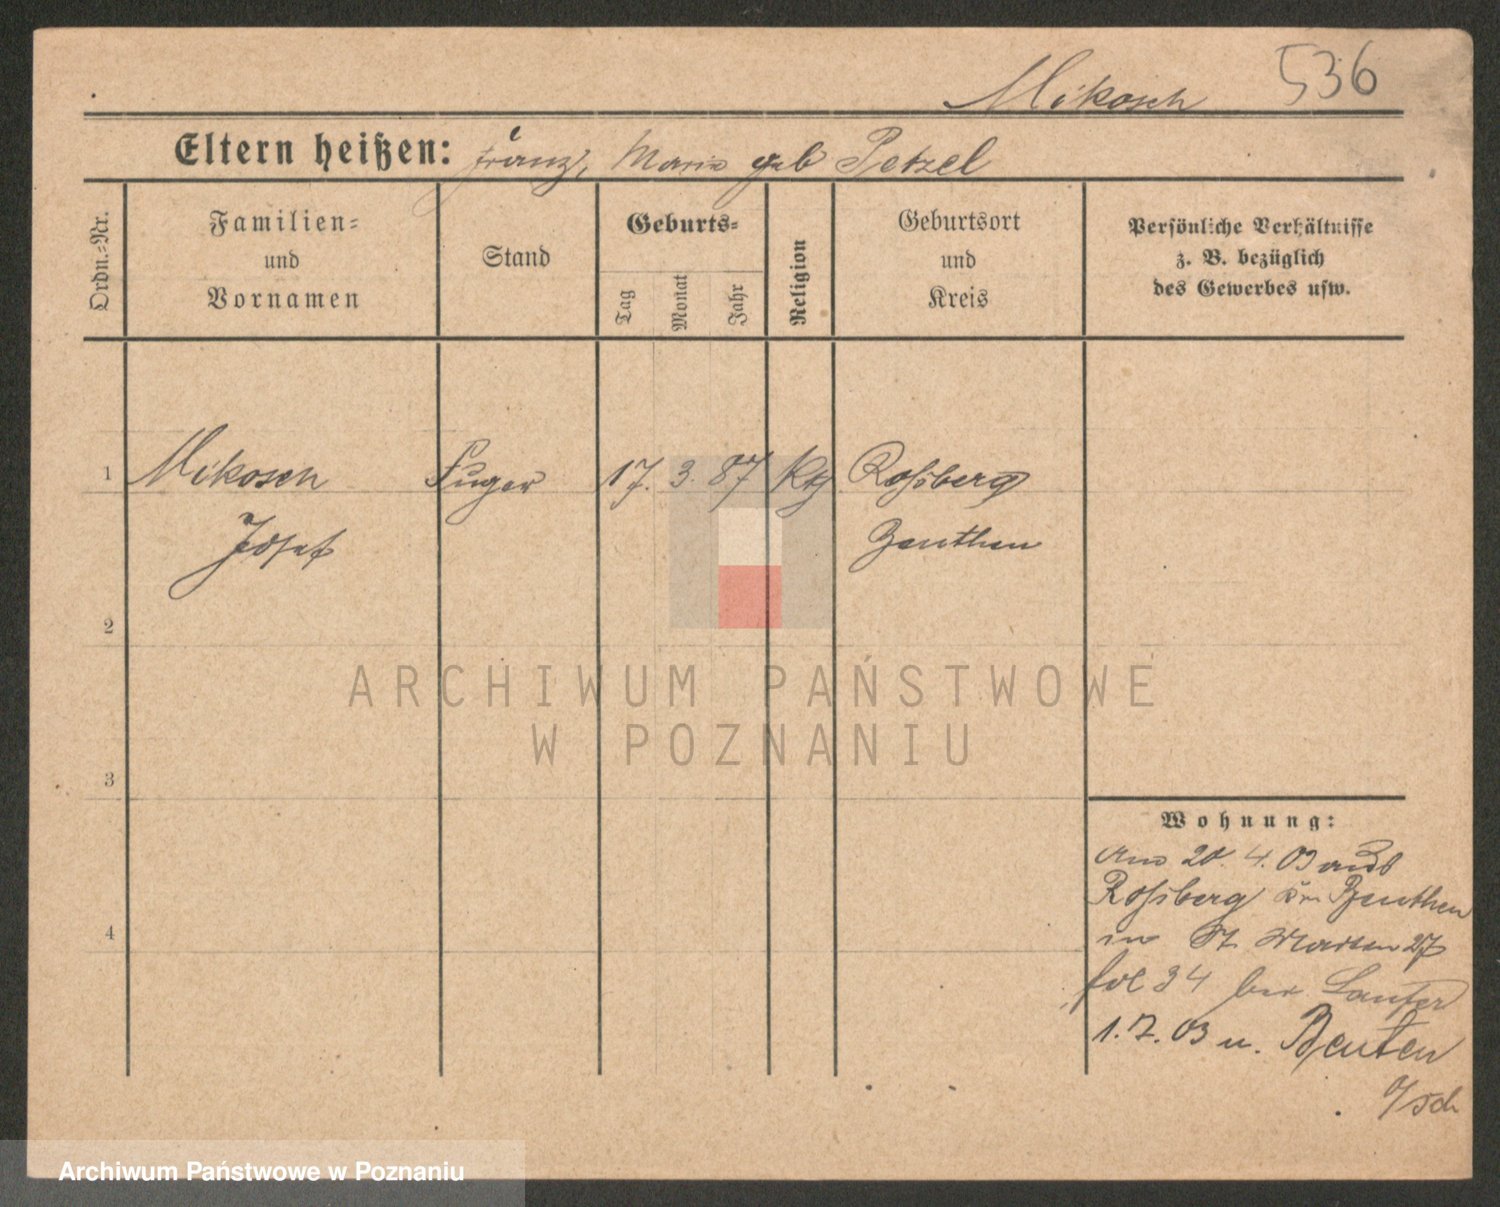 Mikosch 536
Eltern heißen: Franz, Maria geb Petzel
Ordn.=Nr.
Familien=
und
Vornamen
Stand
Geburts=
Tag
Monat
Jahr
Religion
Geburtsort
und
Kreis
Persönliche Verhältnisse
z. B. bezüglich
des Gewerbes usw.
1 Mikosch 17. 3. 87 kth Roßberg
Josef Beuthen
2
ARCHIWUM PAŃSTWOWE
W POZNANIU
3
Wohnung:
Am 20. 4. 03 aus
Roßberg Beuthen
4
in St Martin 27
fol 34 bei
1. 7. 03 n. Beuten
Archiwum Państwowe w Poznaniu